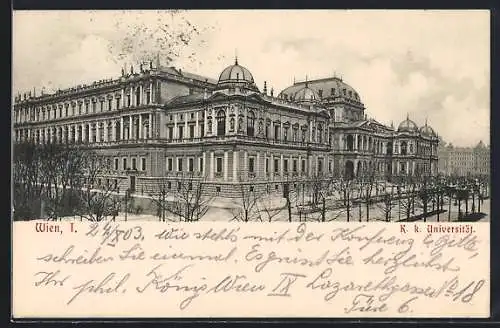 Wien, I.
K. k. Universität.
24/8 03 Wie stehts mit der Konferenz? Bitte,
schreiben Sie einmal. Es grüsst Sie herzlichst
Ihr phil. König Wien IX Lazarethgasse No 18
Türe 6.